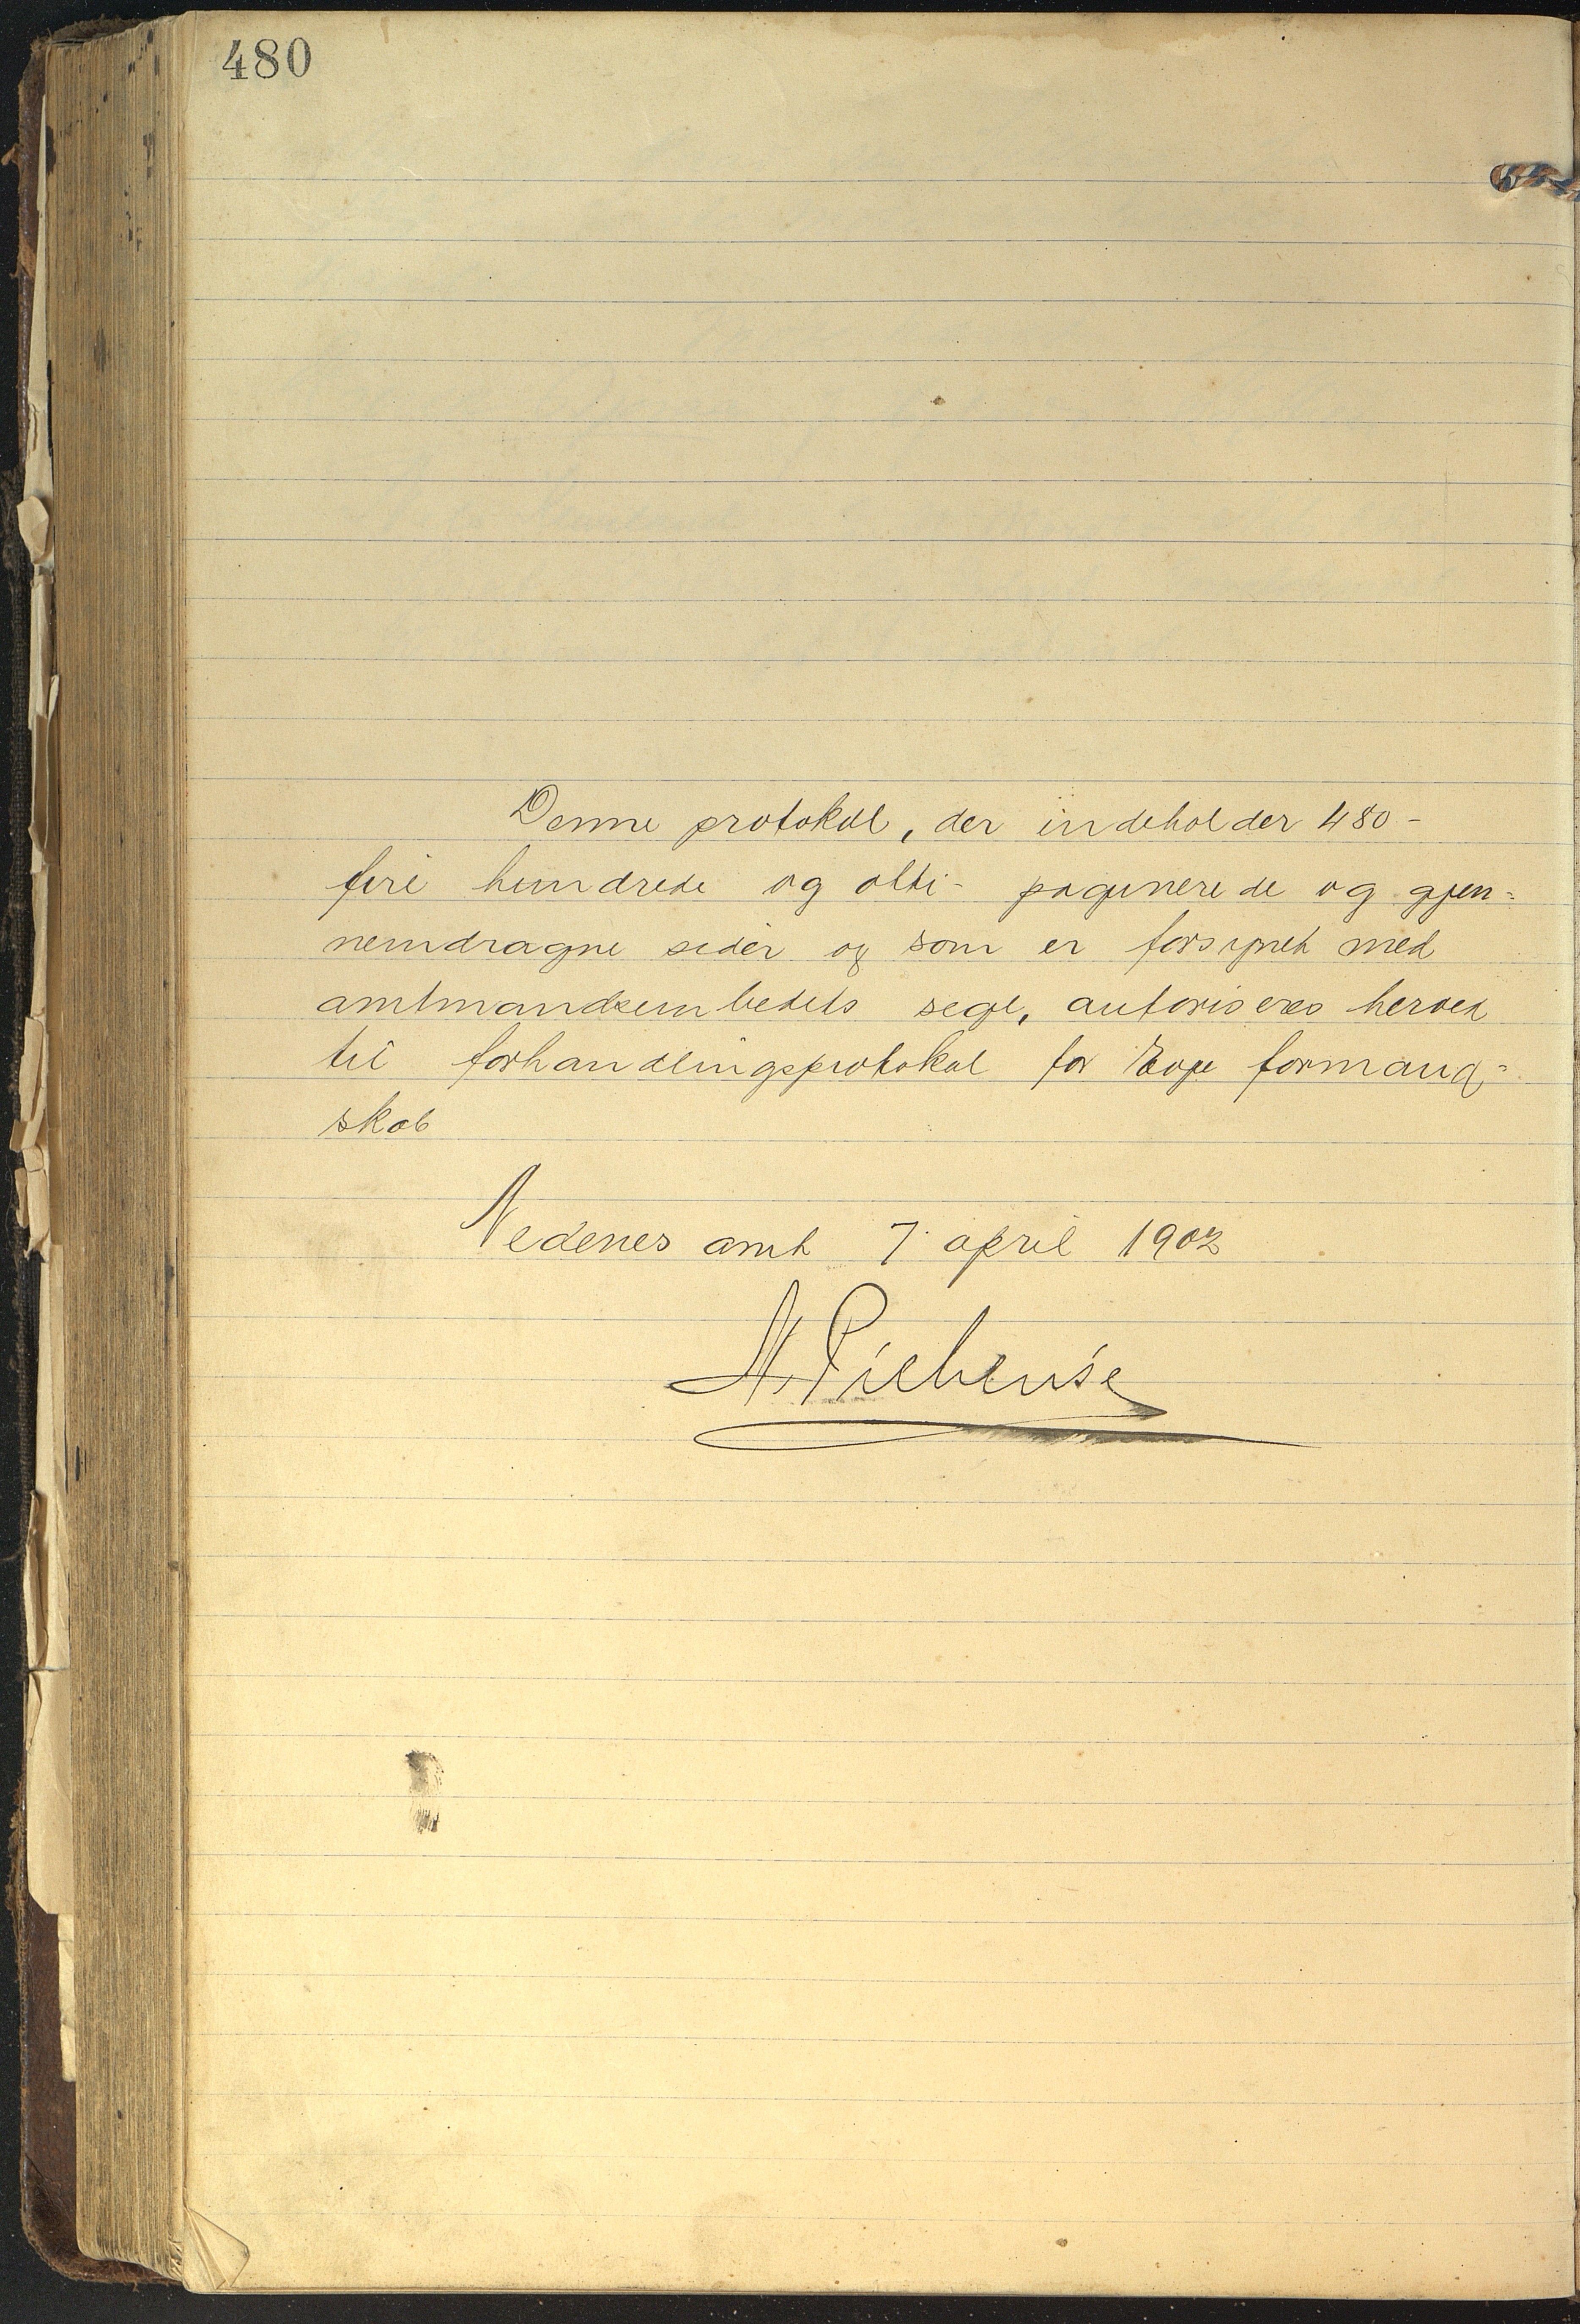 480
Denne protokol, der indeholder 480-
fire hundrede og otti- paginerede og gjen=
nemdragne sider og som er forsynet med
amtmandsembedets segl, autoriseres herved
til forhandlingsprotokol for Evje formand=
skab
Nedenes amt 7. april 1902